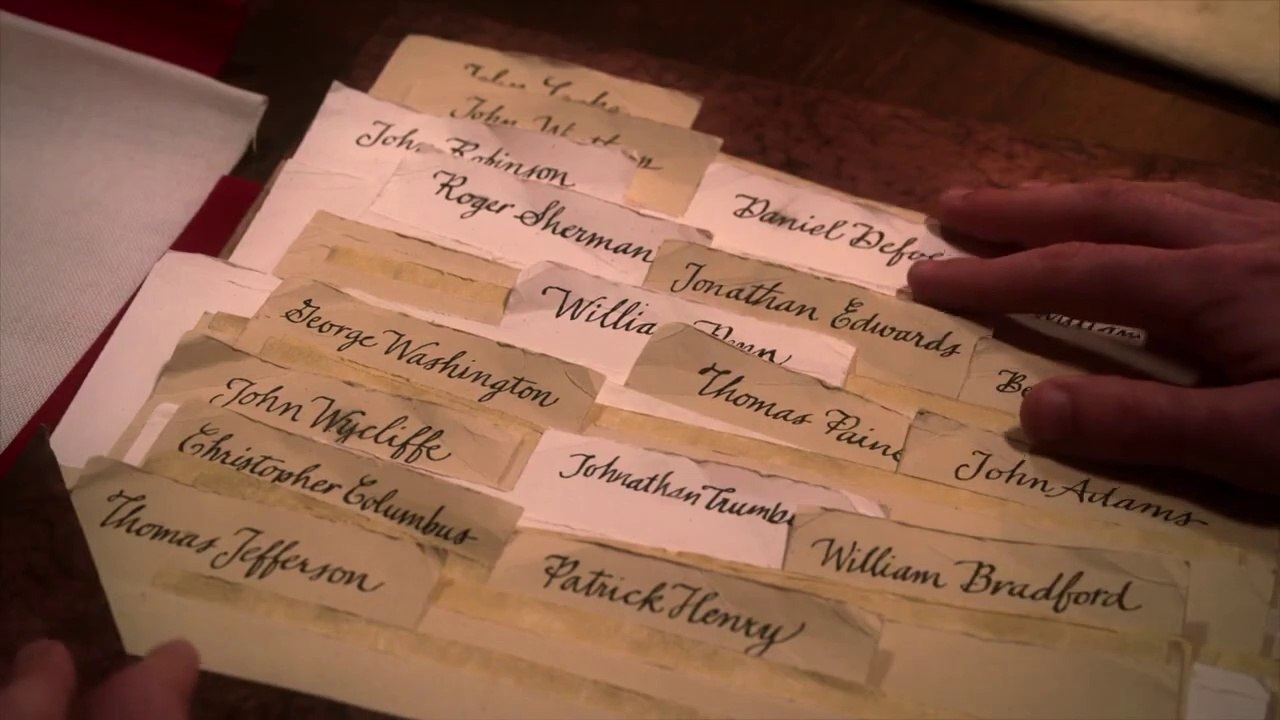 John
John
John Robinson
Roger Sherman
Daniel Defoe
Jonathan Edwards
William Penn
George Washington
Thomas Paine
Be
John Wycliffe
John Adams
Christopher Columbus
Johnathan Trumbu
Thomas Jefferson
Patrick Henry
William Bradford